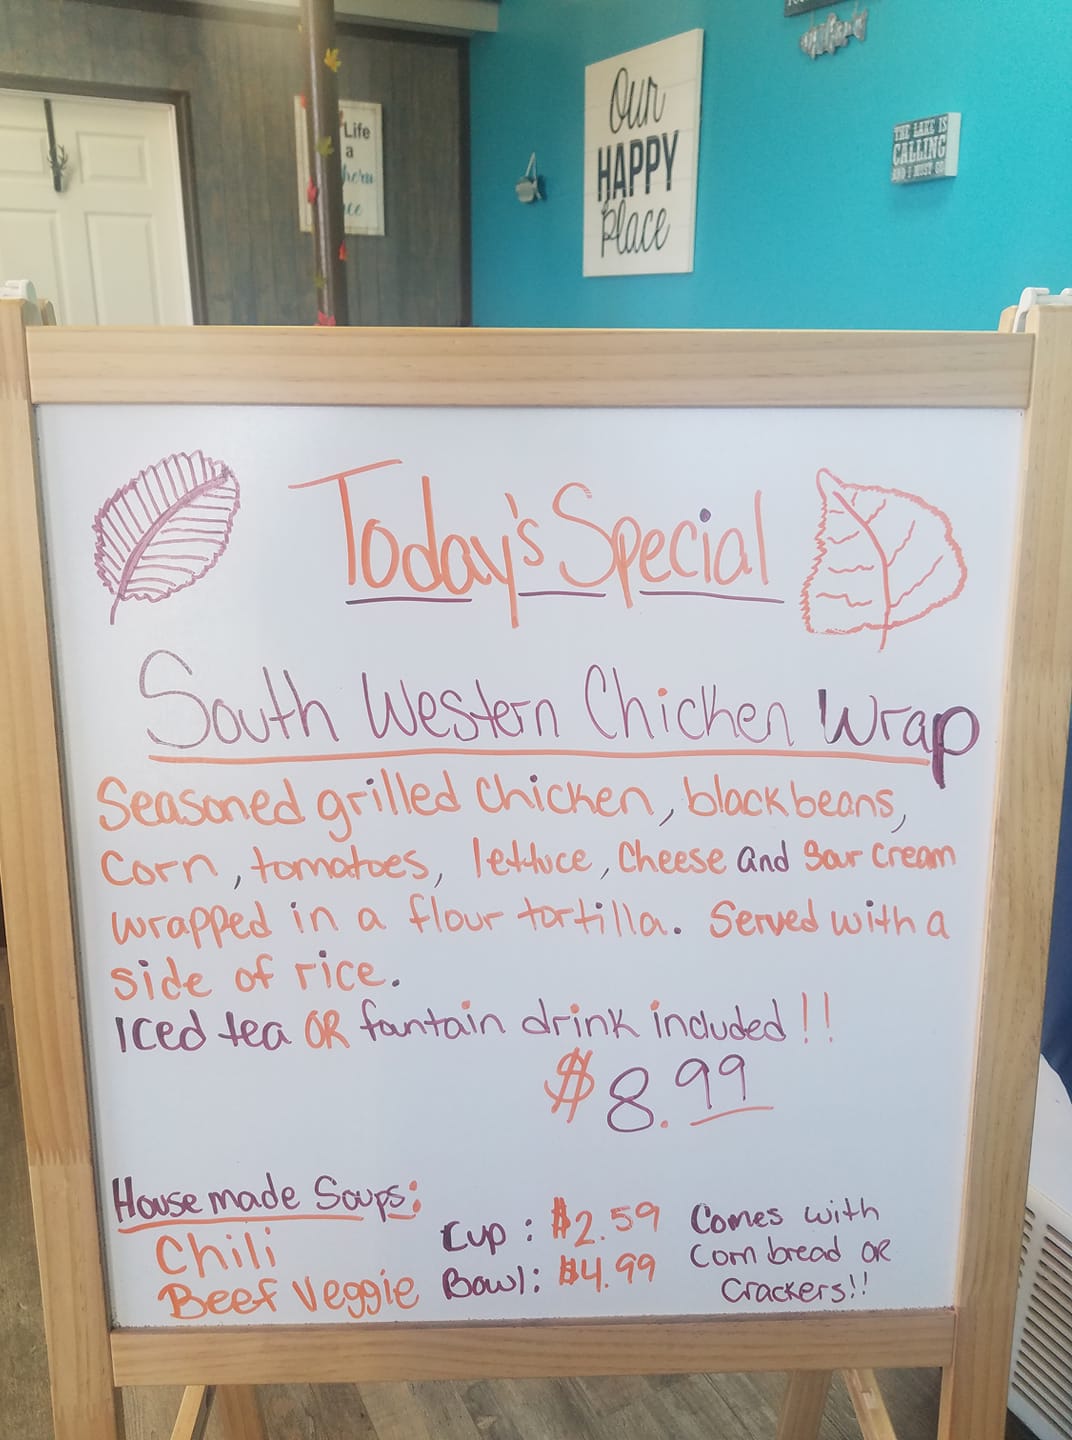 Our
HAPPY
Place
THE LAKE IS
CALLING
AND I MUST GO
Life
a
Today's Special
South Western Chicken Wrap
Seasoned grilled chicken, black beans,
Corn, tomatoes, lettuce, Cheese and Sour Cream
wrapped in a flour tortilla. Served with a
side of rice.
Iced tea OR fountain drink included!!
$8.99
House made Soups:
Chili
Beef Veggie
Cup: $2.59
Bowl: $4.99
Comes with
Corn bread OR
Crackers!!